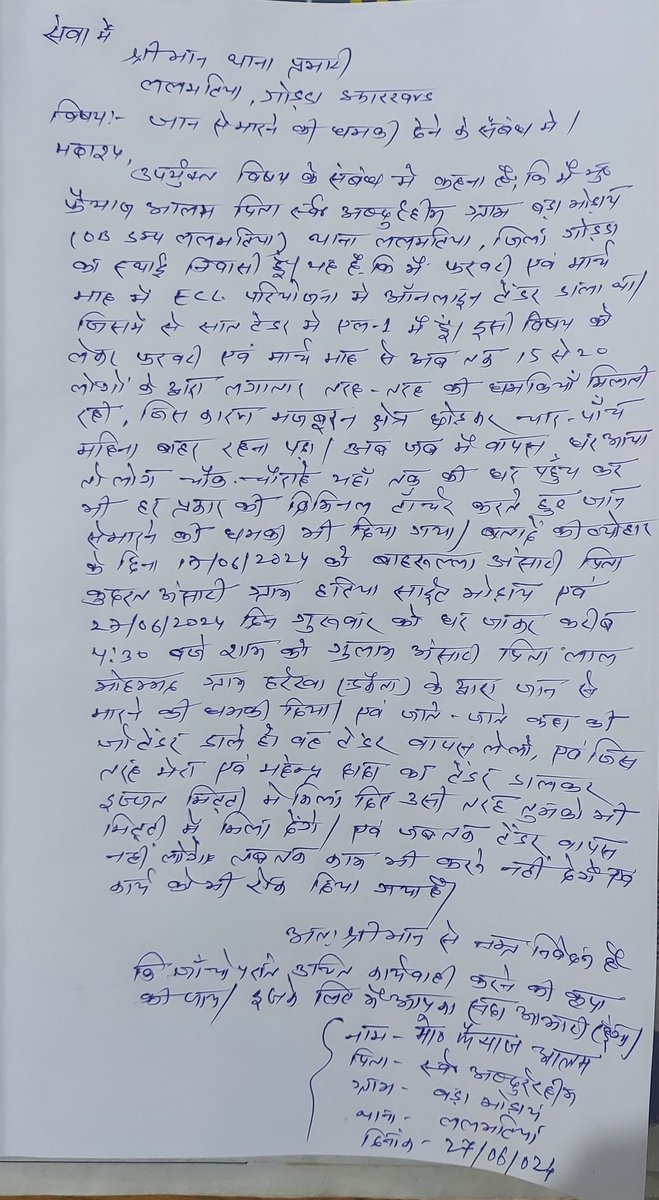 सेवा में
श्रीमान थाना प्रभारी
ललमटिया, गोड्डा झारखण्ड
विषय:- जान से मारने की धमकी देने के संबंध में।
महाशय,
उपर्युक्त विषय के संबंध में कहना है, कि मैं मु०
फैयाज आलम पिता स्व० अब्दुर्रहीम ग्राम बड़ा भोड़ाय
(OB डम्प ललमटिया) थाना ललमटिया, जिला गोड्डा
का स्थाई निवासी हूँ। यह है कि मैं फरवरी एवं मार्च
माह में ECL परियोजना में ऑनलाइन टेंडर डाला था।
जिसमें से सात टेंडर में एल-1 में हूँ। इसी विषय को
लेकर फरवरी एवं मार्च माह से अब तक 15 से 20
लोगों के द्वारा लगातार तरह-तरह की धमकियाँ मिलती
रही, जिस कारण मजबूरन क्षेत्र छोड़कर चार-पाँच
महिना बाहर रहना पड़ा। अब जब मैं वापस घर आया
तो लोग चौक-चौराहे यहाँ तक की घर पहुँच कर
भी हर प्रकार की क्रिमिनल टॉर्चर करते हुए जान
से मारने की धमकी भी दिया गया। बता दें की
के दिन 17/06/2024 को बाहरूल्ला अंसारी पिता
कुदरत अंसारी ग्राम हटिया साईट भोड़ाय एवं
27/06/2024 दिन गुरुवार को घर जाकर करीब
4:30 बजे शाम को गुलाम अंसारी पिता लाल
मोहम्मद ग्राम हरेखा (डकैता) के द्वारा जान से
मारने की धमकी दिया। एवं जाते-जाते कहा की
जो टेंडर डाले हो वह टेंडर वापस लेलो, एवं जिस
तरह मेरा एवं महेन्द्र साहा का टेंडर डालकर
इज्जत मिट्टी में मिला दिए उसी तरह तुमको भी
मिट्टी में मिला देंगे। एवं जबतक टेंडर वापस
नहीं लोगे तबतक काम भी करने नहीं देंगे एक
कार्य को भी रोक दिया गया है।
अतः श्रीमान से नम्र निवेदन है
कि जाँचोपरांत उचित कार्यवाही करने की कृपा
की जाय। इसके लिए मैं आपका सदा आभारी रहूँगा।
नाम- मो० फैयाज आलम
पिता- स्व० अब्दुर्रहीम
ग्राम- बड़ा भोड़ाय
थाना- ललमटिया
दिनांक- 27/06/024